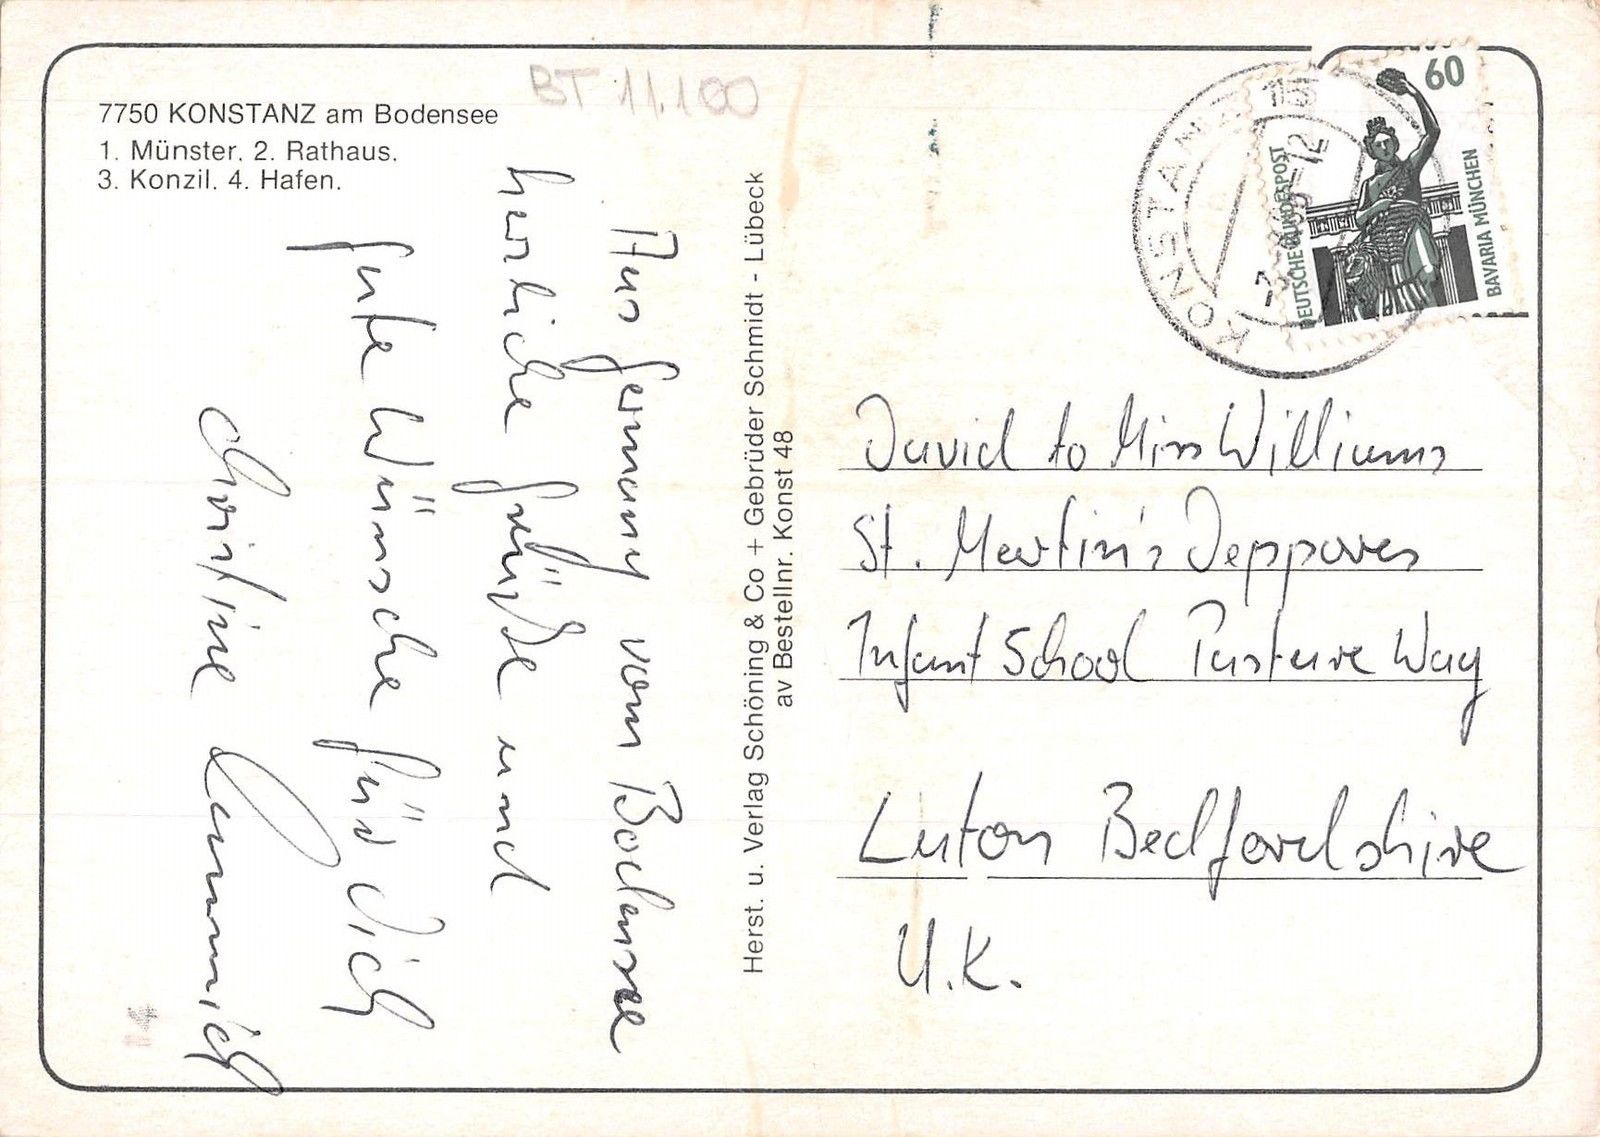 7750 KONSTANZ am Bodensee
1. Münster. 2. Rathaus.
3. Konzil. 4. Hafen.
BT 11.100
Aus Germany vom Bodensee
herrliche Grüße und
gute Wünsche für Dich
Christine
Herst. u. Verlag Schöning & Co + Gebrüder Schmidt - Lübeck
av Bestellnr. Konst 48
KONSTANZ
60
DEUTSCHE BUNDESPOST
BAVARIA MÜNCHEN
David to Miss Williams
St. Martin's Deppores
Infant School Pasture Way
Luton Bedfordshire
U.K.